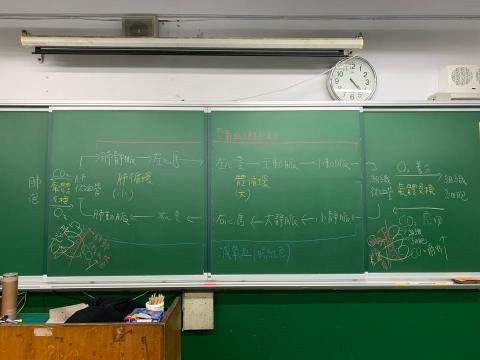 充氧血(鮮紅色)
→肺靜脈→左心房→左心室→主動脈→小動脈
肺泡
CO₂
氣體
交換
O₂
肺
微血管
肺循環
(小)
體循環
(大)
組織
微血管
O₂ 養分
氣體交換
CO₂ 廢物
組織
細胞
肺動脈←右心室
右心房←大靜脈←小靜脈←
減氧血(暗紅色)
組織
細胞